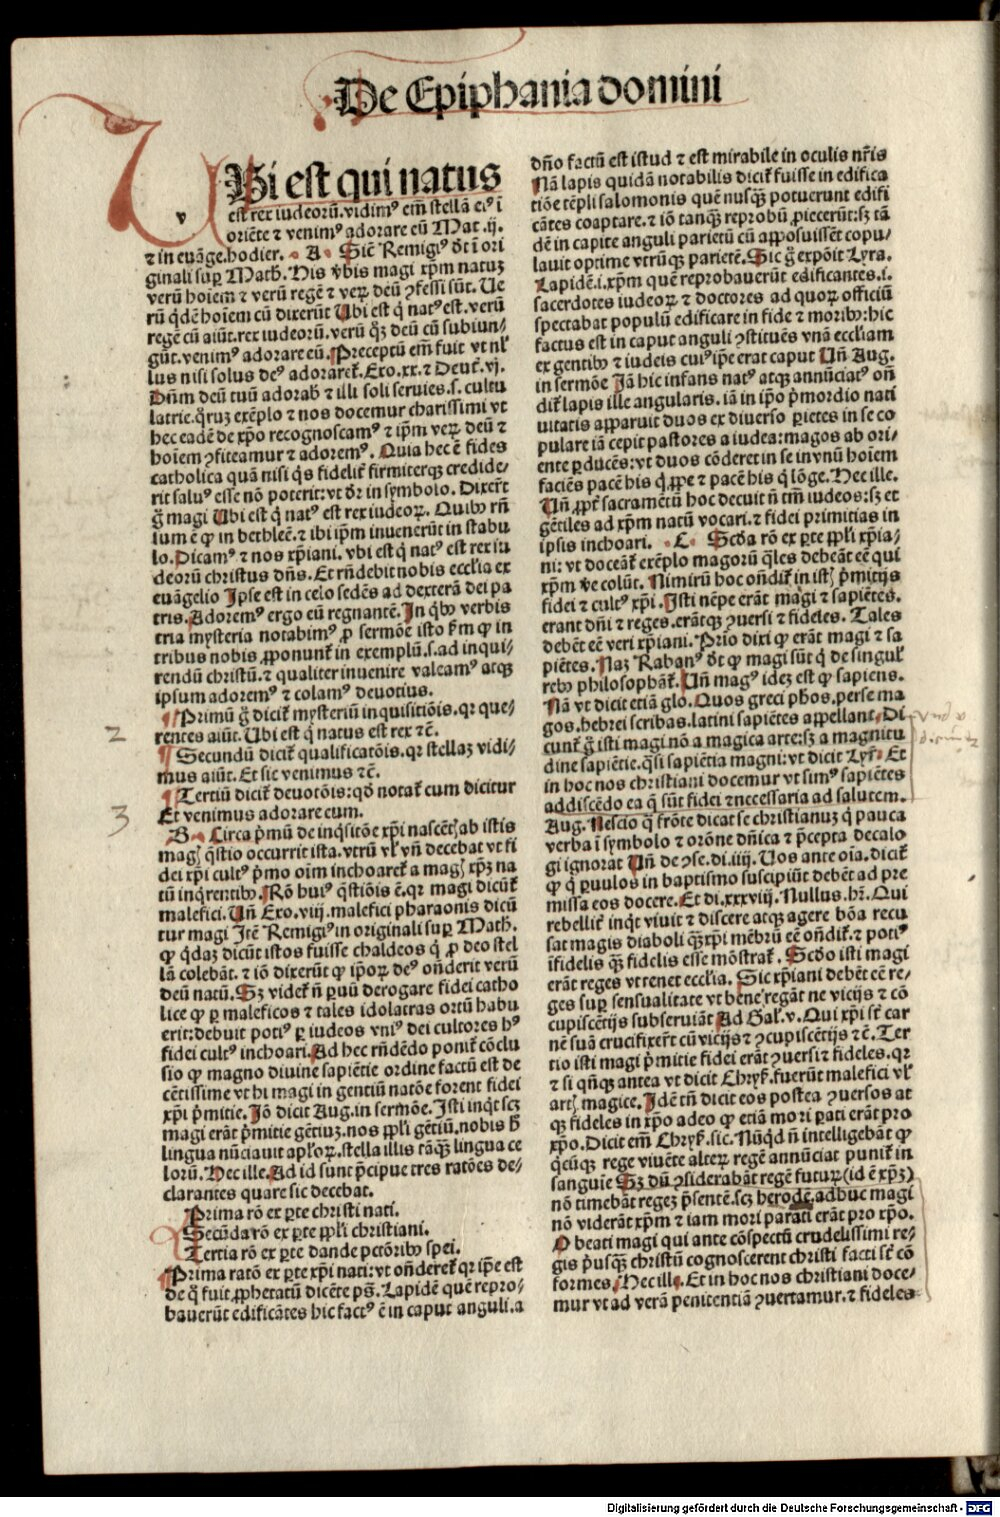 De Epiphania domini
VBi est qui natus
est rex iudeorū.vidimꝰ em̄ stellā eiꝰ ī
oriēte ⁊ venimꝰ adorare eū Mat .ij.
⁊ in euāge.hodier. A Sic̄ Remigiꝰ dt̄ ī ori
ginali suꝑ Math̄. His v̄bis magi xp̄m natuꝫ
verū hoiem ⁊ verū regē ⁊ veꝝ deū ꝯfessi sūt. Ue
rū q̇dē hoiem cū dixerūt Ubi est q̇ natꝰ est. verū
regē cū aiūt.rex iudeorū.verū q̊ꝫ deū cū subiun⸗
gūt.venimꝰ adorare eū. Preceptū em̄ fuit vt nl̄
lus nisi solus deꝰ adoraret̄. Exo.xx.⁊ Deut̄.vj.
Dn̄m deū tuū adorab̄ ⁊ illi soli seruies.s. cultu
latrie.q̄ruꝫ exēplo ⁊ nos docemur charissimi vt
hec eadē de xp̄o recognoscamꝰ ⁊ ip̄m veꝝ deū ⁊
hoiem ꝯfiteamur ⁊ adoremꝰ. Quia hec ē fides
catholica quā nisi q̇s fidelit̄ firmiterqꝫ credide⸗
rit saluꝰ esse nō poterit: vt dr̄ in symbolo. Dixer̄t
g̊ magi Ubi est q̇ natꝰ est rex iudeoꝝ. Quibꝰ rn̄
sum ē ꝙ in bethleē.⁊ ibi ip̄m inuenerūt in stabu
lo. Dicamꝰ ⁊ nos xp̄iani. vbi est q̇ natꝰ est rex iu
deorū christus dn̄s. Et rn̄debit nobis ecclia ex
euāgelio Ipse est in celo sedēs ad dexterā dei pa
tris. Adoremꝰ ergo eū regnantē. In q̇bꝰ verbis
tria mysteria notabimꝰ ꝓ sermōe isto ẜm ꝙ in
tribus nobis ꝓponunt̄ in exemplū.s.ad inqui⸗
rendū christū.⁊ qualiter inuenire valeamꝰ atqꝫ
ipsum adoremꝰ ⁊ colamꝰ deuotius.
Primū g̊ dicit̄ mysteriū inquisitiōis.qꝛ que⸗
2
rentes aiūt. Ubi est q̇ natus est rex ⁊c̄.
Secundū dicit̄ qualificatōis.qꝛ stellaꝫ vidi⸗
mus aiūt. Et sic venimus ⁊c̄.
Tertiū dicit̄ deuotōis: qd̄ notat̄ cum dicitur
3
Et venimus adorare eum.
B Circa p̄mū de inq̇sitōe xp̄i nascētꝭ ab istis
magꝭ q̄stio occurrit ista.vtrū vl̄ vn̄ decebat vt fi
dei xp̄i cultꝰ p̄mo oim inchoaret̄ a magꝭ xp̄ꝫ na
tū inq̇rentibꝰ. Rō huiꝰ q̄stiōis ē.qꝛ magi dicūt̄
malefici. Un̄ Exo.viij.malefici pharaonis dicū
tur magi Itē Remigiꝰ in originali suꝑ Math̄.
ꝙ q̇daꝫ dicūt istos fuisse chaldeos q̇ ꝓ deo stel
lā colebāt.⁊ iō dixerūt ꝙ ip̄oꝝ deꝰ on̄derit verū
deū natū. Sꝫ videt̄ n̄ ꝑuū derogare fidei catho
lice ꝙ ꝑ maleficos ⁊ tales idolatras ortū habu
erit: debuit potiꝰ ꝑ iudeos vniꝰ dei cultores hꝰ
fidei cultꝰ inchoari. Ad hec rn̄dēdo ponit̄ cōclu
sio ꝙ magno diuine sapiētie ordine factū est de
cētissime vt hi magi in gentiū natōe forent fidei
xp̄i p̄mitie. Iō dicit Aug.in sermōe. Isti inq̇t scꝫ
magi erāt p̄mitie gētiuꝫ.nos ppl̄i gētiū.nobis h̄
lingua nūciauit apl̄oꝝ.stella illis tāqꝫ lingua ce
lorū. Hec ille. Ad id sunt p̄cipue tres ratōes de⸗
clarantes quare sic decebat.
Prima rō ex ꝑte christi nati.
Secūda rō ex ꝑte ppl̄i christiani.
Tertia rō ex ꝑte dande pctōribꝰ spei.
Prima ratō ex ꝑte xp̄i nati: vt on̄deret̄ qꝛ ip̄e est
de q̊ fuit ꝓphetatū dicēte ps̄. Lapidē quē repro⸗
bauerūt edificātes hic factꝰ ē in caput anguli.a
dn̄o factū est istud ⁊ est mirabile in oculis nr̄is
Nā lapis quidā notabilis dicit̄ fuisse in edifica
tiōe tēpli salomonis quē nusqꝫ potuerunt edifi
cātes coaptare.⁊ iō tanqꝫ reprobū ꝓiecerūt: sꝫ tā
dē in capite anguli parietū cū apposuissēt copu⸗
lauit optime vtrūqꝫ parietē. Sic g̊ expōit Lyra.
Lapidē.i.xp̄m quē reprobauerūt edificantes.i.
sacerdotes iudeoꝝ ⁊ doctores ad quoꝝ officiū
spectabat populū edificare in fide ⁊ moribꝰ: hic
factus est in caput anguli ꝯstituēs vnā eccl̄iam
ex gentibꝰ ⁊ iudeis cuiꝰ ip̄e erat caput Un̄ Aug.
in sermōe Iā hic infans natꝰ atqꝫ annūciatꝰ on̄
dit̄ lapis ille angularis. iā in ip̄o p̄mordio nati
uitatis apparuit duos ex diuerso ꝑietes in se co
pulare iā cepit pastores a iudea: magos ab ori⸗
ente ꝑducēs: vt duos cōderet in se in vnū hoiem
faciēs pacē his q̇ ꝓpe ⁊ pacē his q̇ lōge. Hec ille.
Un̄ ꝓpt̄ sacramētū hoc decuit n̄ tm̄ iudeos: sꝫ et
gētiles ad xp̄m natū vocari.⁊ fidei primitias in
ipsis inchoari. C Scd̄a rō ex ꝑte ppl̄i xp̄ia⸗
ni: vt doceāt̄ exēplo magorū q̄les debeāt eē qui
xp̄m ve colūt. Nimirū hoc on̄dit̄ in istꝭ p̄mitijs
fidei ⁊ cultꝰ xp̄i. Isti nēpe erāt magi ⁊ sapiētes.
erant dn̄i ⁊ reges.erātqꝫ ꝯuersi ⁊ fideles. Tales
debēt eē veri xp̄iani. Prio dixi ꝙ erāt magi ⁊ sa
piētes. Naꝫ Rabanꝰ dt̄ ꝙ magi sūt q̇ de singul̄
rebꝰ philosophāt̄. Un̄ magꝰ ideꝫ est ꝙ sapiens.
Nā vt dicit etiā glo. Quos greci phōs.perse ma
gos.hebrei scribas.latini sapiētes appellant. Di
cunt̄ g̊ isti magi nō a magica arte: sꝫ a magnitu
dine sapiētie.q̄si sapiētia magni: vt dicit Lyr̄. Et
in hoc nos christiani docemur vt simꝰ sapiētes
addiscēdo ea q̄ sūt fidei ⁊ necessaria ad salutem.
Aug. Nescio q̄ frōte dicat se christianuꝫ q̇ pauca
verba ī symbolo ⁊ orōne dn̄ica ⁊ p̄cepta decalo
gi ignorat Un̄ de ꝯse.di.iiij. Uos ante oīa.dicit̄
ꝙ q̇ ꝑuulos in baptismo suscipiūt debēt ad pre
missa eos docere. Et di.xxxviij. Nullus.hꝛ. Qui
rebellit̄ inq̇t viuit ⁊ discere atqꝫ agere bōa recu
sat magis diaboli qꝫ xp̄i mēbrū eē on̄dit̄.⁊ potiꝰ
īfidelis qꝫ fidelis esse mōstrat̄. Scd̄o isti magi
erāt reges vt tenet eccl̄ia. Sic xp̄iani debēt eē re⸗
ges suꝑ sensualitate vt bene regāt ne vicijs ⁊ cō
cupiscētijs subseruiāt Ad Gal̄.v. Qui xp̄i st̄ car
nē suā crucifixer̄t cū vicijs ⁊ ꝯcupiscētijs ⁊c̄. Ter
tio isti magi p̄mitie fidei erāt ꝯuersi ⁊ fideles.qꝛ
⁊ si qn̄qꝫ antea vt dicit Chryẜ.fuerūt malefici vl̄
artꝭ magice. Idē tn̄ dicit eos postea ꝯuersos at
qꝫ fideles in xp̄o adeo ꝙ etiā mori ꝑati erāt pro
xp̄o. Dicit em̄ Chryẜ.sic. Nūqd̄ n̄ intelligebāt ꝙ
q̇cūqꝫ rege viuēte alteꝝ regē annūciat punit̄ in
sanguīe Sꝫ dū ꝯsiderabāt regē futuꝝ (id ē xp̄ꝫ)
nō timebāt regeꝫ p̄sentē.scꝫ herodē.adhuc magi
nō viderāt xp̄m ⁊ iam mori parati erāt pro xp̄o.
O beati magi qui ante cōspectū crudelissimi re⸗
gis p̄usqꝫ christū cognoscerent christi facti st̄ cō
formes. Hec ill̄. Et in hoc nos christiani doce⸗
mur vt ad verā penitentiā ꝯuertamur.⁊ fideles
Digitalisierung gefördert durch die Deutsche Forschungsgemeinschaft - DFG